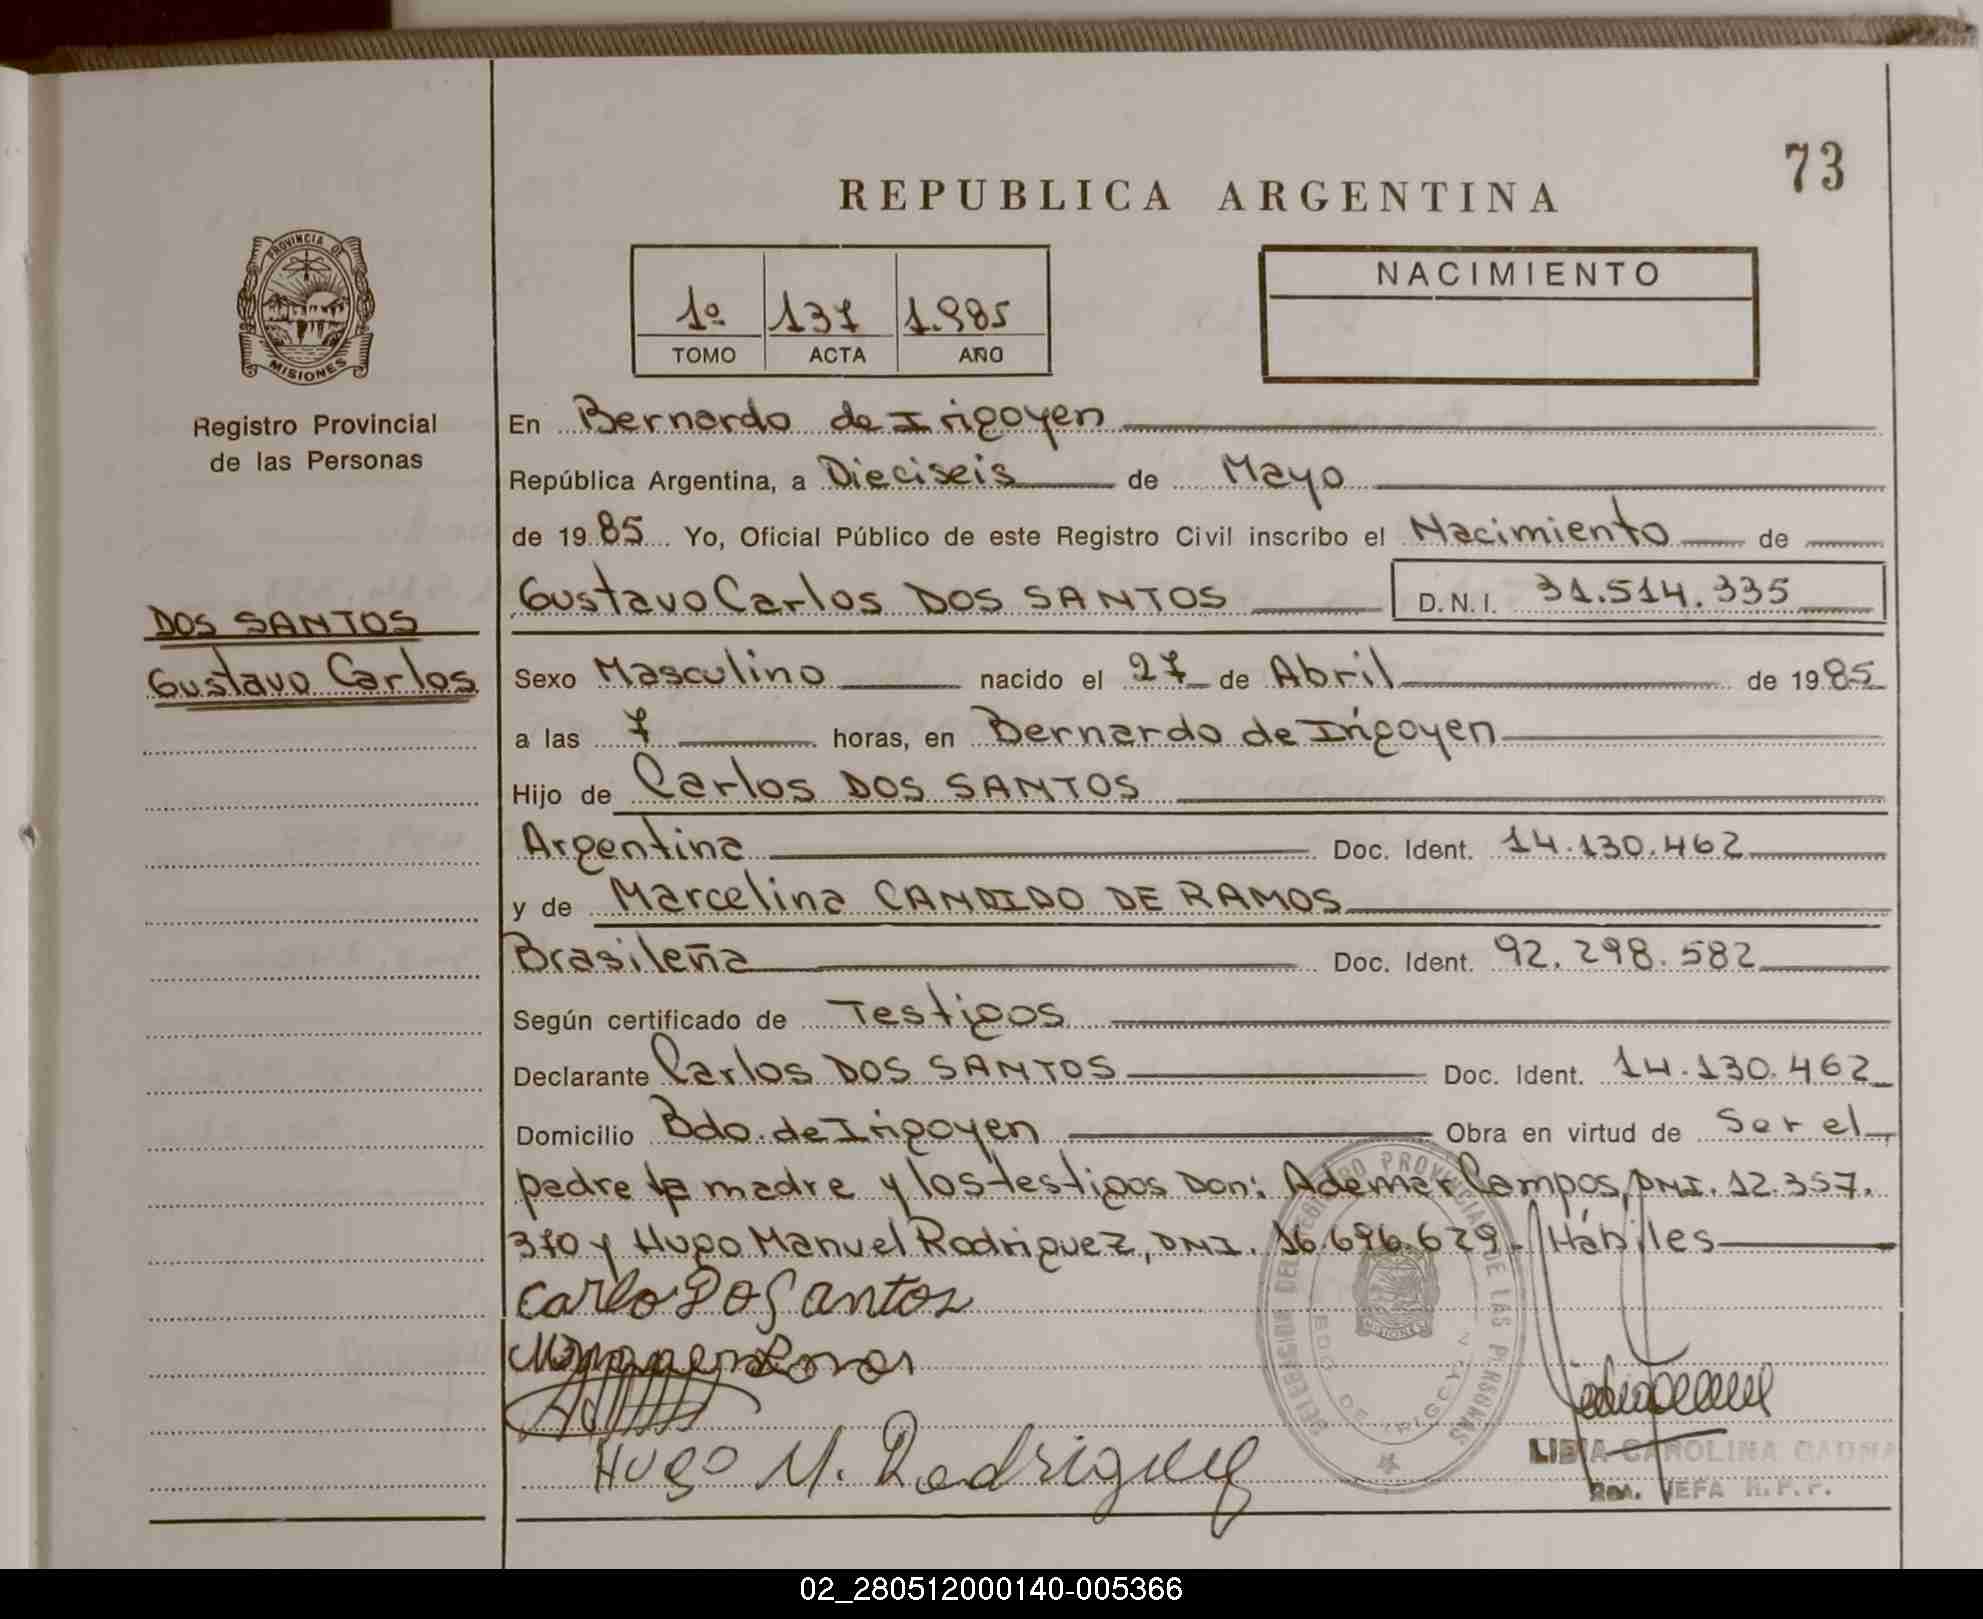 73
REPUBLICA ARGENTINA
PROVINCIA DE
MISIONES
Registro Provincial
de las Personas
1º 137 1.985
TOMO ACTA AÑO
NACIMIENTO
En Bernardo de Irigoyen
República Argentina, a Dieciseis de Mayo
de 1985 Yo, Oficial Público de este Registro Civil inscribo el Nacimiento de
Gustavo Carlos DOS SANTOS D.N.I. 31.514.335
DOS SANTOS
Gustavo Carlos
Sexo Masculino nacido el 27 de Abril de 1985
a las 7 horas, en Bernardo de Irigoyen
Hijo de Carlos DOS SANTOS
Argentina Doc. Ident. 14.130.462
y de Marcelina CANDIDO DE RAMOS
Brasileña Doc. Ident. 92.298.582
Según certificado de Testigos
Declarante Carlos DOS SANTOS Doc. Ident. 14.130.462
Domicilio Bdo. de Irigoyen Obra en virtud de Ser el
padre la madre y los testigos Don: Ademar Campos, DNI. 12.357.
370 y Hugo Manuel Rodriguez, DNI. 16.696.629. Hábiles
Carlo Do Santos
Hugo M. Rodriguez
DELEGACION DEL REGISTRO PROVINCIAL DE LAS PERSONAS
BDO. DE IRIGOYEN
MISIONES
LIBIA CAROLINA
JEFA R.P.P.
02_280512000140-005366